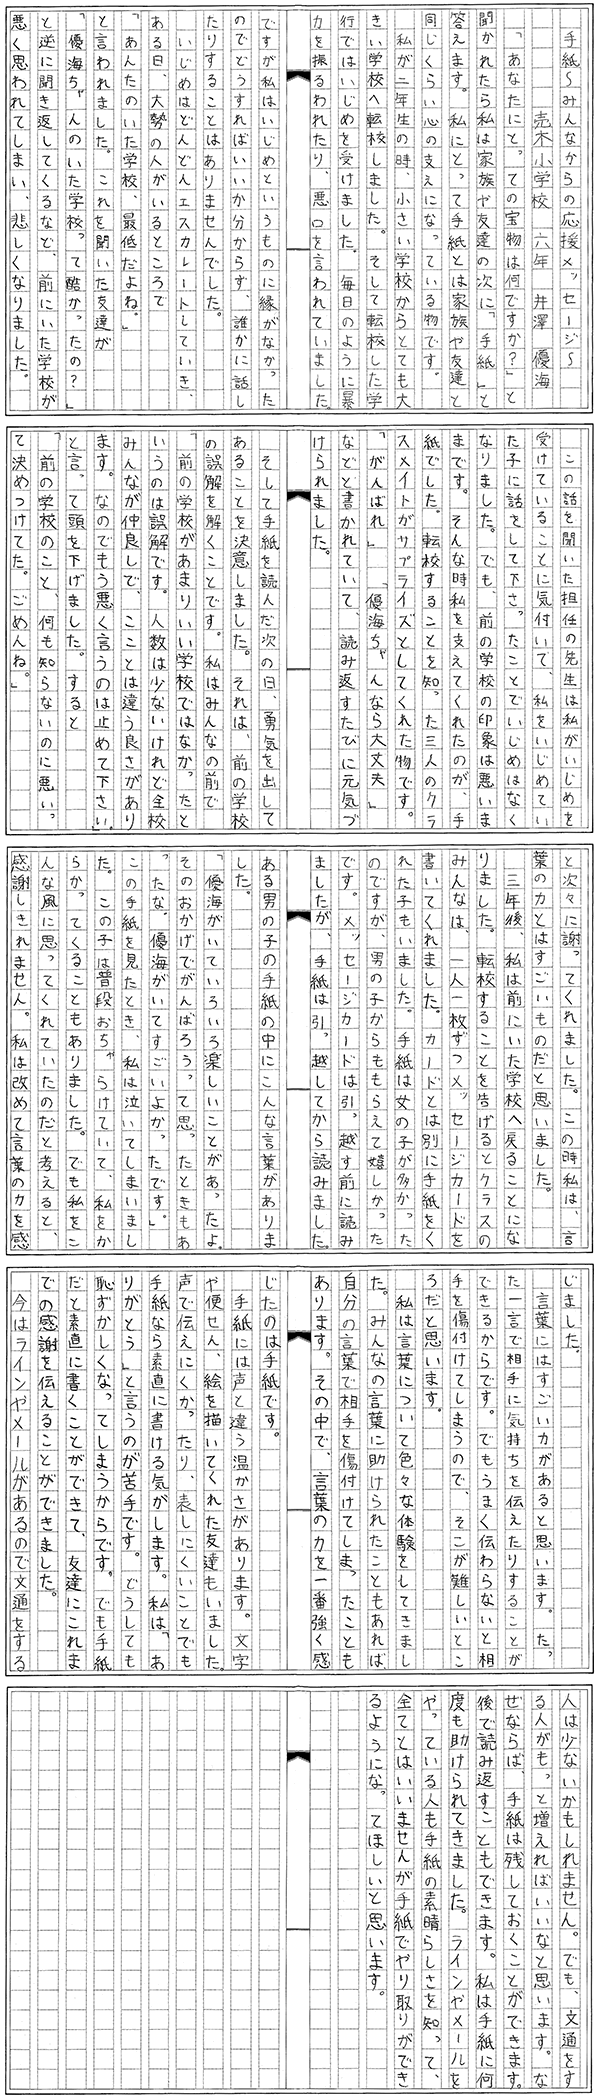 手紙～みんなからの応援メッセージ～
売木小学校　六年　井澤　優海
「あなたにとっての宝物は何ですか？」と
聞かれたら私は家族や友達の次に「手紙」と
答えます。私にとって手紙とは家族や友達と
同じくらい心の支えになっている物です。
私が二年生の時、小さい学校からとても大
きい学校へ転校しました。そして転校した学
校ではいじめを受けました。毎日のように暴
力を振るわれたり、悪口を言われていました
ですが私はいじめというものに縁がなかった
のでどうすればいいか分からず、誰かに話し
たりすることはありませんでした。
いじめはどんどんエスカレートしていき、
ある日、大勢の人がいるところで
「あんたのいた学校、最低だよね。」
と言われました。これを聞いた友達が
「優海ちゃんのいた学校って酷かったの？」
と逆に聞き返してくるなど、前にいた学校が
悪く思われてしまい、悲しくなりました。
この話を聞いた担任の先生は私がいじめを
受けていることに気付いて、私をいじめてい
た子に話をして下さったことでいじめはなく
なりました。でも、前の学校の印象は悪いま
まです。そんな時私を支えてくれたのが、手
紙でした。転校することを知った三人のクラ
スメイトがサプライズとしてくれた物です。
「がんばれ」　「優海ちゃんなら大丈夫」
などと書かれていて、読み返すたびに元気づ
けられました。
そして手紙を読んだ次の日、勇気を出して
あることを決意しました。それは、前の学校
の誤解を解くことです。私はみんなの前で
「前の学校があまりいい学校ではなかったと
いうのは誤解です。人数は少ないけれど全校
みんなが仲良しで、ここととは違う良さがあり
ます。なのでもう悪く言うのは止めて下さい」
と言って頭を下げました。すると
「前の学校のこと、何も知らないのに悪いっ
て決めつけてた。ごめんね。」
と次々に謝ってくれました。この時私は、言
葉の力とはすごいものだと思いました。
三年後、私は前にいた学校へ戻ることにな
りました。転校することを告げるとクラスの
みんなは、一人一枚ずつメッセージカードを
書いてくれました。カードとは別に手紙をく
れた子もいました。手紙は女の子が多かった
のですが、男の子からももらえて嬉しかった
です。メッセージカードは引っ越す前に読み
ましたが、手紙は引っ越してから読みました。
ある男の子の手紙の中にこんな言葉がありま
した。
「優海がいていろいろ楽しいことがあったよ。
そのおかげでがんばろうって思ったときもあ
ったな。優海がいてすごいよかったです。」
この手紙を見たとき、私は泣いてしまいまし
た。この子は普段おちゃらけていて、私をか
らかってくることもありました。でも私をこ
んな風に思ってくれていたのだと考えると、
感謝しきれません。私は改めて言葉の力を感
じました。
言葉にはすごい力があると思います。たっ
た一言で相手に気持ちを伝えたりすることが
できるからです。でもうまく伝わらないと相
手を傷付けてしまうので、そこが難しいとこ
ろだと思います。
私は言葉について色々な体験をしてきまし
た。みんなの言葉に助けられたこともあれば
自分の言葉で相手を傷付けてしまったことも
あります。その中で、言葉の力を一番強く感
じたのは手紙です。
手紙には声と違う温かさがあります。文字
や便せん、絵を描いてくれた友達もいました。
声で伝えにくかったり、表しにくいことでも
手紙なら素直に書ける気がします。私は「あ
りがとう」と言うのが苦手です。どうしても
恥ずかしくなってしまうからです。でも手紙
だと素直に書くことができて、友達にこれま
での感謝を伝えることができました。
今はラインやメールがあるので文通をする
人は少ないかもしれません。でも、文通をす
る人がもっと増えればいいなと思います。な
ぜならば、手紙は残しておくことができます。
後で読み返すこともできます。私は手紙に何
度も助けられてきました。ラインやメールを
やっている人も手紙の素晴らしさを知って、
全てとはいいませんが手紙でやり取りができ
るようになってほしいと思います。